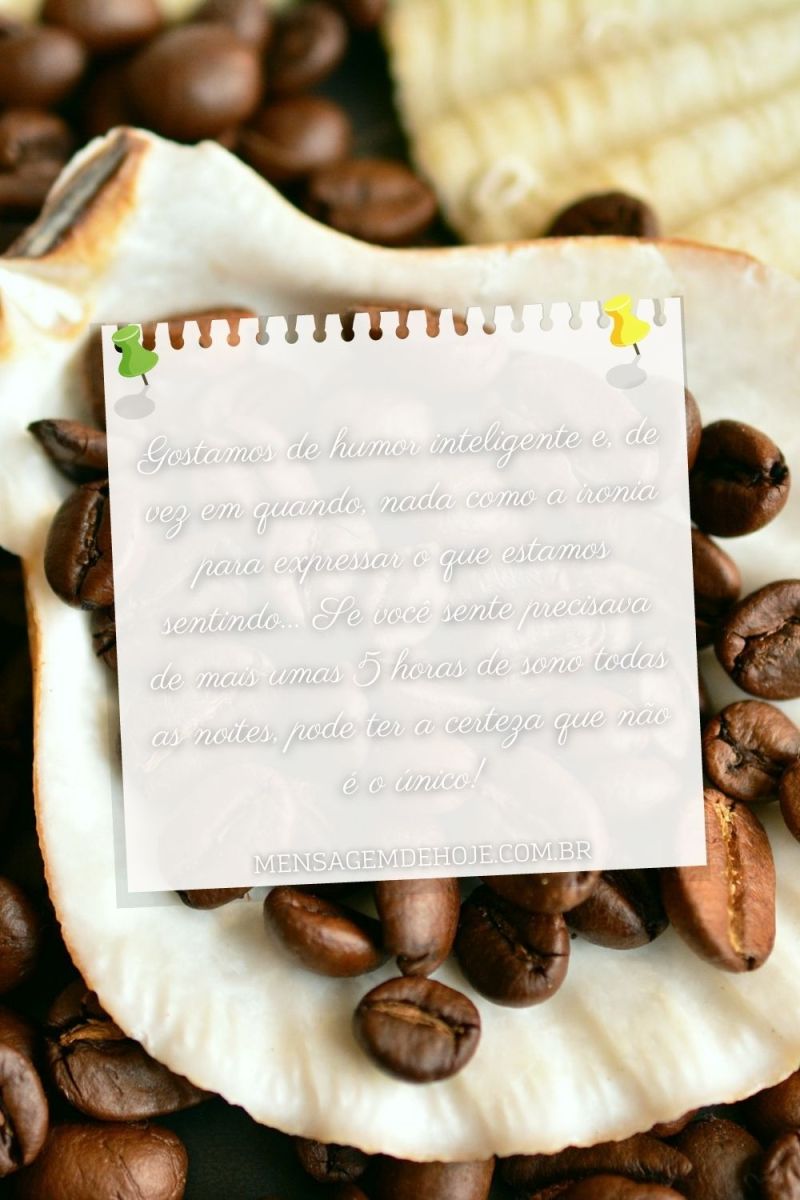 Gostamos de humor inteligente e, de
vez em quando, nada como a ironia
para expressar o que estamos
sentindo... Se você sente precisava
de mais umas 5 horas de sono todas
as noites, pode ter a certeza que não
é o único!
MENSAGEMDEHOJE.COM.BR